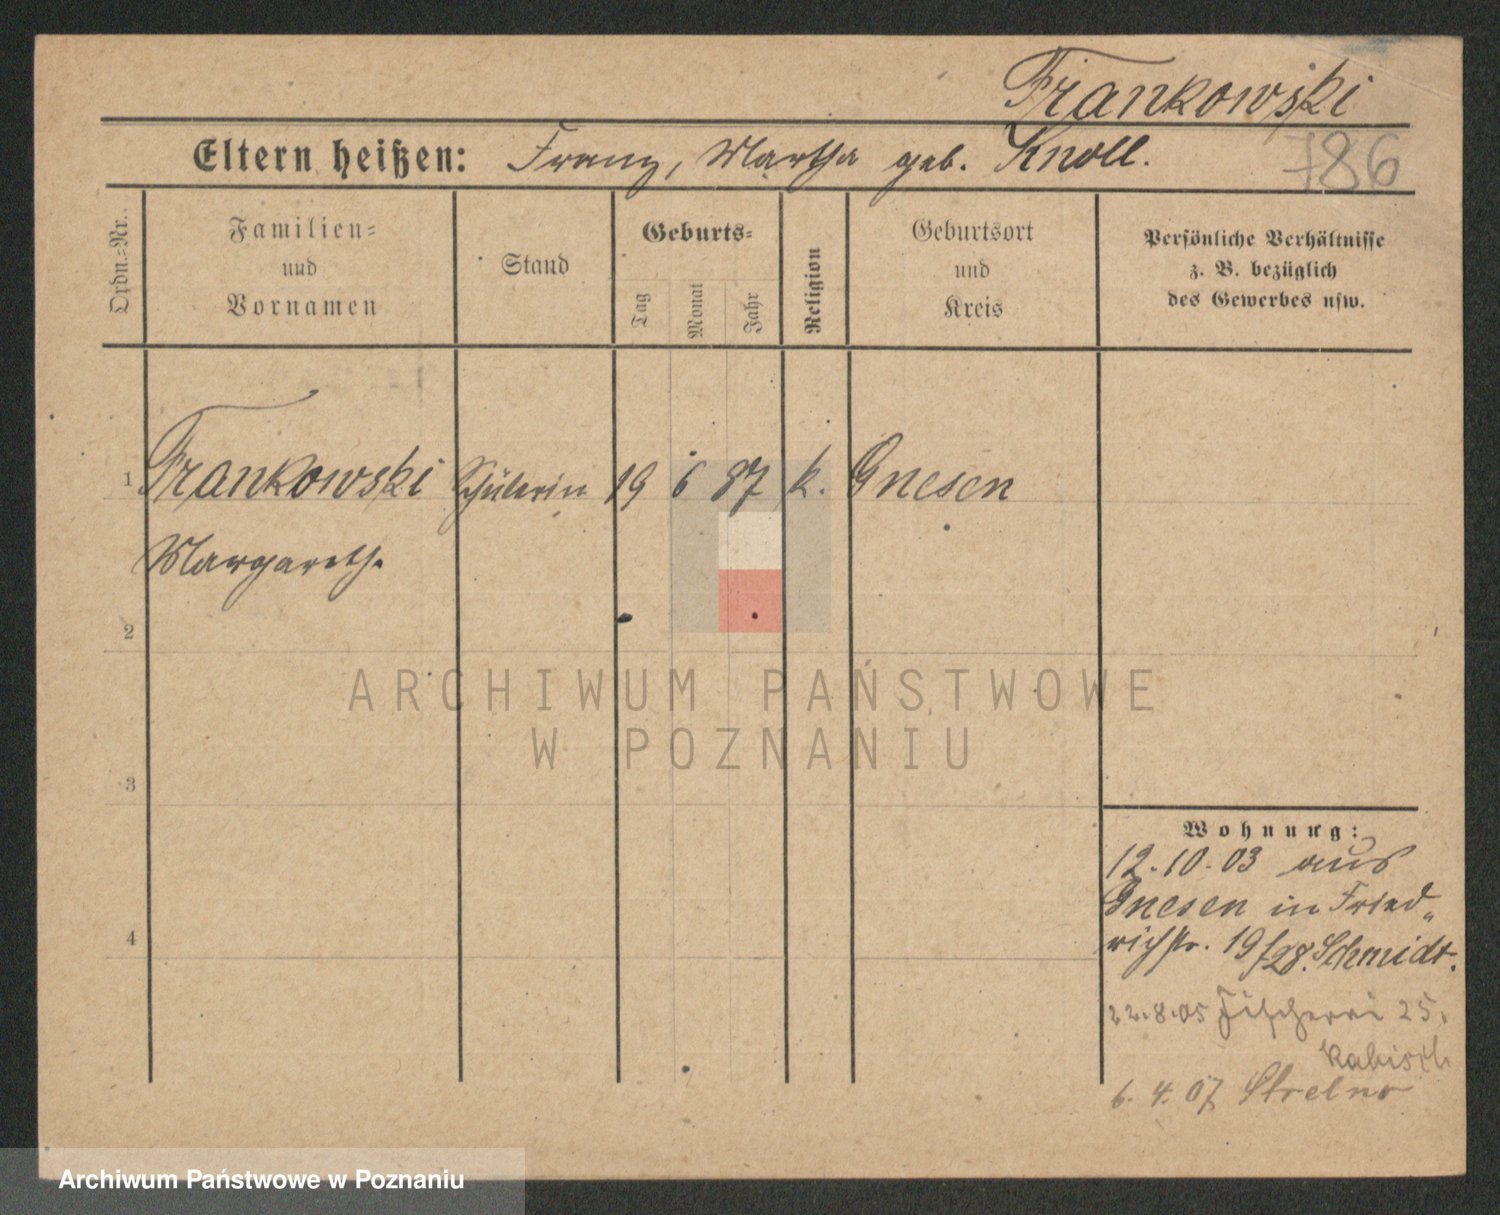 Frankowski
Eltern heißen: Franz, Martha geb. Knoll.
786
Ordn.-Nr.
Familien-
und
Vornamen
Stand
Geburts-
Tag
Monat
Jahr
Religion
Geburtsort
und
Kreis
Persönliche Verhältnisse
z. B. bezüglich
des Gewerbes usw.
1 Frankowski Schülerin 19 6 87 k. Gnesen
Margareth.
2
3
4
ARCHIWUM PAŃSTWOWE
W POZNANIU
Wohnung:
12.10.03 aus
Gnesen in Fried„
richstr. 19/28. Schmidt.
22.8.05 Fischerei 25.
Kabisch
6.4.07 Strelno
Archiwum Państwowe w Poznaniu